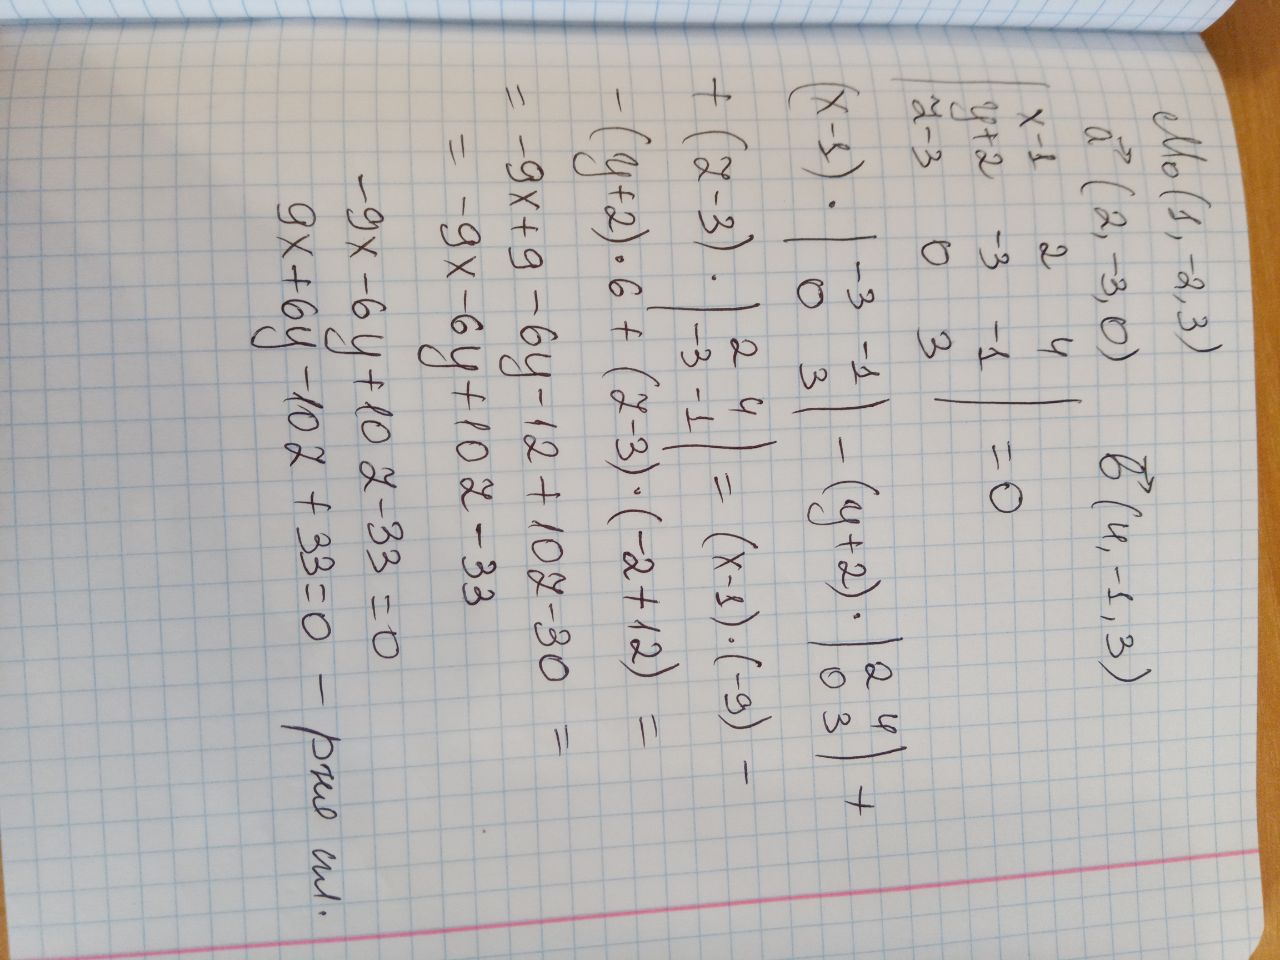 M₀(1, -2, 3)
a⃗ (2, -3, 0) b⃗ (4, -1, 3)
| x-1 2 4 |
| y+2 -3 -1 | = 0
| z-3 0 3 |
(x-1) · | -3 -1 | - (y+2) · | 2 4 | +
| 0 3 | | 0 3 |
+ (z-3) · | 2 4 | = (x-1)·(-9) -
| -3 -1 |
- (y+2)·6 + (z-3)·(-2+12) =
= -9x+9 -6y-12+10z-30 =
= -9x-6y+10z-33
-9x-6y+10z-33=0
9x+6y-10z+33=0 - р-ня пл.